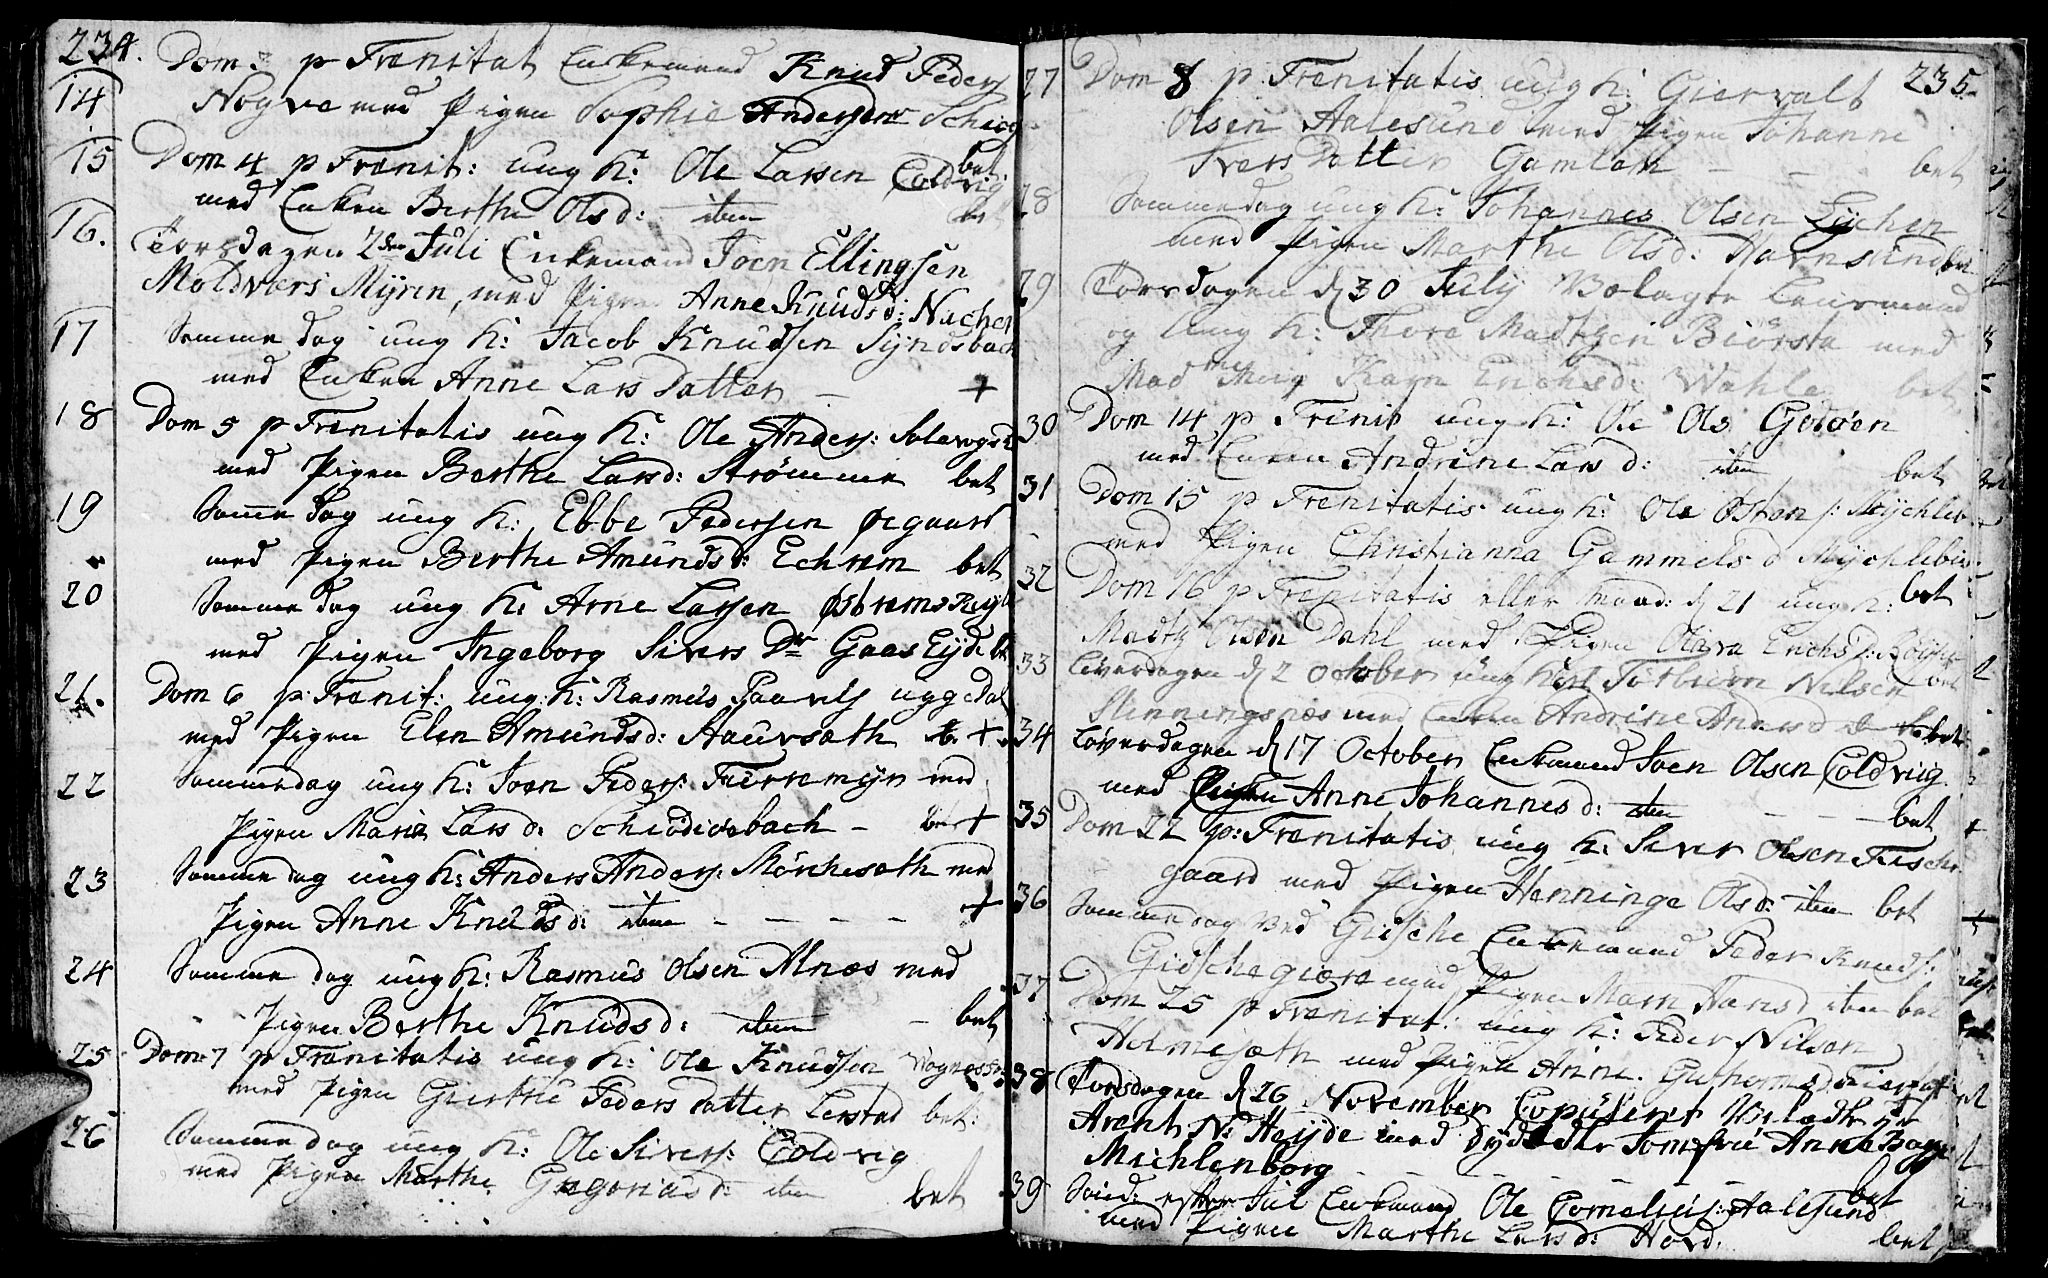 234.
14 Dom 3 p Trenitat Enkemand Knud Peders
Nogve med Pigen Sophie Andersdr
15 Dom 4 p Trenit: ung k: Ole Larsen Coldvig bet
med Enken Berthe Olsd: item bet
16. Torsdagen 2den Juli Enkemand Joen Ellingsen
Moldvers Myren, med Pigen Anne Knudsd: Nacken
17 Samme dag ung k: Jacob Knudsen Syndsbach
med Enken Anne Lars Datter – +
18 Dom 5 p Trenitatis ung k: Ole Anders:
med Pigen Berthe Larsd: Strømme bet
19 Samme Dag ung k: Ebbe Pedersen Øegaard
med Pigen Berthe Amundsd: Echrem bet
20 Samme dag ung k: Arne Larsen
med Pigen Ingeborg Sivers Dr Gaas Eyde
21. Dom 6 p: Trenit: ung k: Rasmus Paavels uggedal
med Pigen Elen Amundsd: Staursæth +
22 Sammedag ung k: Joen Peders: med
Pigen Maria Lars d: – +
23 Samme dag ung k: Anders Anders: Mørchesæth med
Pigen Anne Knudsd: item – – – – +
24 Samme dag ung k: Rasmus Olsen Alnæs med
Pigen Berthe Knudsd: item – bet
25 Dom: 7 p Trenitatis ung k: Ole Knudsen
med Pigen Giertrue Peders Datter Lerstad bet:
26 Samme dag ung k: Ole Sivers: Coldvig
med Pigen Marthe Gregoriusd: item bet
235.
27 Dom 8 p Trenitatis ung k:
Olsen Aalesund med Pigen Johanne
Ivers Datter Gamlem – – bet
28 Sammedag ung k: Johannes Olsen Eychen
med Pigen Marthe Olsd: Havnsund bet
29 Torsdagen d 30 July Velagte Lensmand
og ung k: Thore Madtzen Biørsta med
Mad Karn Erichsd: Wahle bet
30 Dom 14 p Trenit ung k: Ole Ols Godøen
med Enken Andrine Lars d: item bet
31 Dom 15 p Trenitatis ung k: Ole Østens:
med Pigen Christianna Gammelsd
32 Dom 16 p Trenitatis eller d 21 ung k: bet
Madtz Olsen Dahl med Pigen Olava Erichs D:
33 Løverdagen d 2 October ung karl Torbiørn Nilsen bet
Slinningsnæs med Enken Andrine Andersd bet
34 Løverdagen d 17 October Enkemand Joen Olsen Coldvig
med Pigen Anne Johannesd: item – – – bet
35 Dom 22 p: Trenitatis ung k: Siver Olsen
gaard med Pigen Henninge Olsd: item bet
36 Samme dag ved Giische Enkemand Peder Knuds:
Giische med Pigen Marn Hansd item bet
37 Dom 25 p Trenitat: ung k: Peder Nilsen
Holmesæth med Pigen Anne
38 Torsdagen d 26 November Copuleret
Arent N: Heyde med Dyd Jomfrue Anne
Michlenborg – – – – bet
39 Sønd: efter Jul Enkemand Ole Cornelius: Aalesund
med Pigen Marthe Larsd: Nord. bet